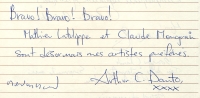 Bravo! Bravo! Bravo!
Mathieu Lalippe et Claude Mangin
sont désormais mes artistes préférés.
Arthur C. Danto
xxxx